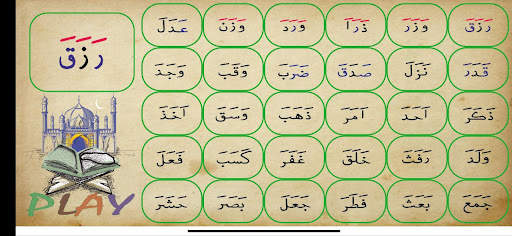 رَزَقَ وَزَرَ ذَرَاَ وَرَدَ وَزَنَ عَدَلَ
قَدَرَ نَزَلَ صَدَقَ ضَرَبَ وَقَبَ وَجَدَ
ذَكَرَ اَحَدَ اَمَرَ ذَهَبَ وَسَقَ اَخَذَ
وَلَدَ رَفَثَ خَلَقَ غَفَرَ كَسَبَ فَعَلَ
جَمَعَ بَعَثَ فَطَرَ جَعَلَ بَصَرَ حَشَرَ
رَزَقَ
PLAY